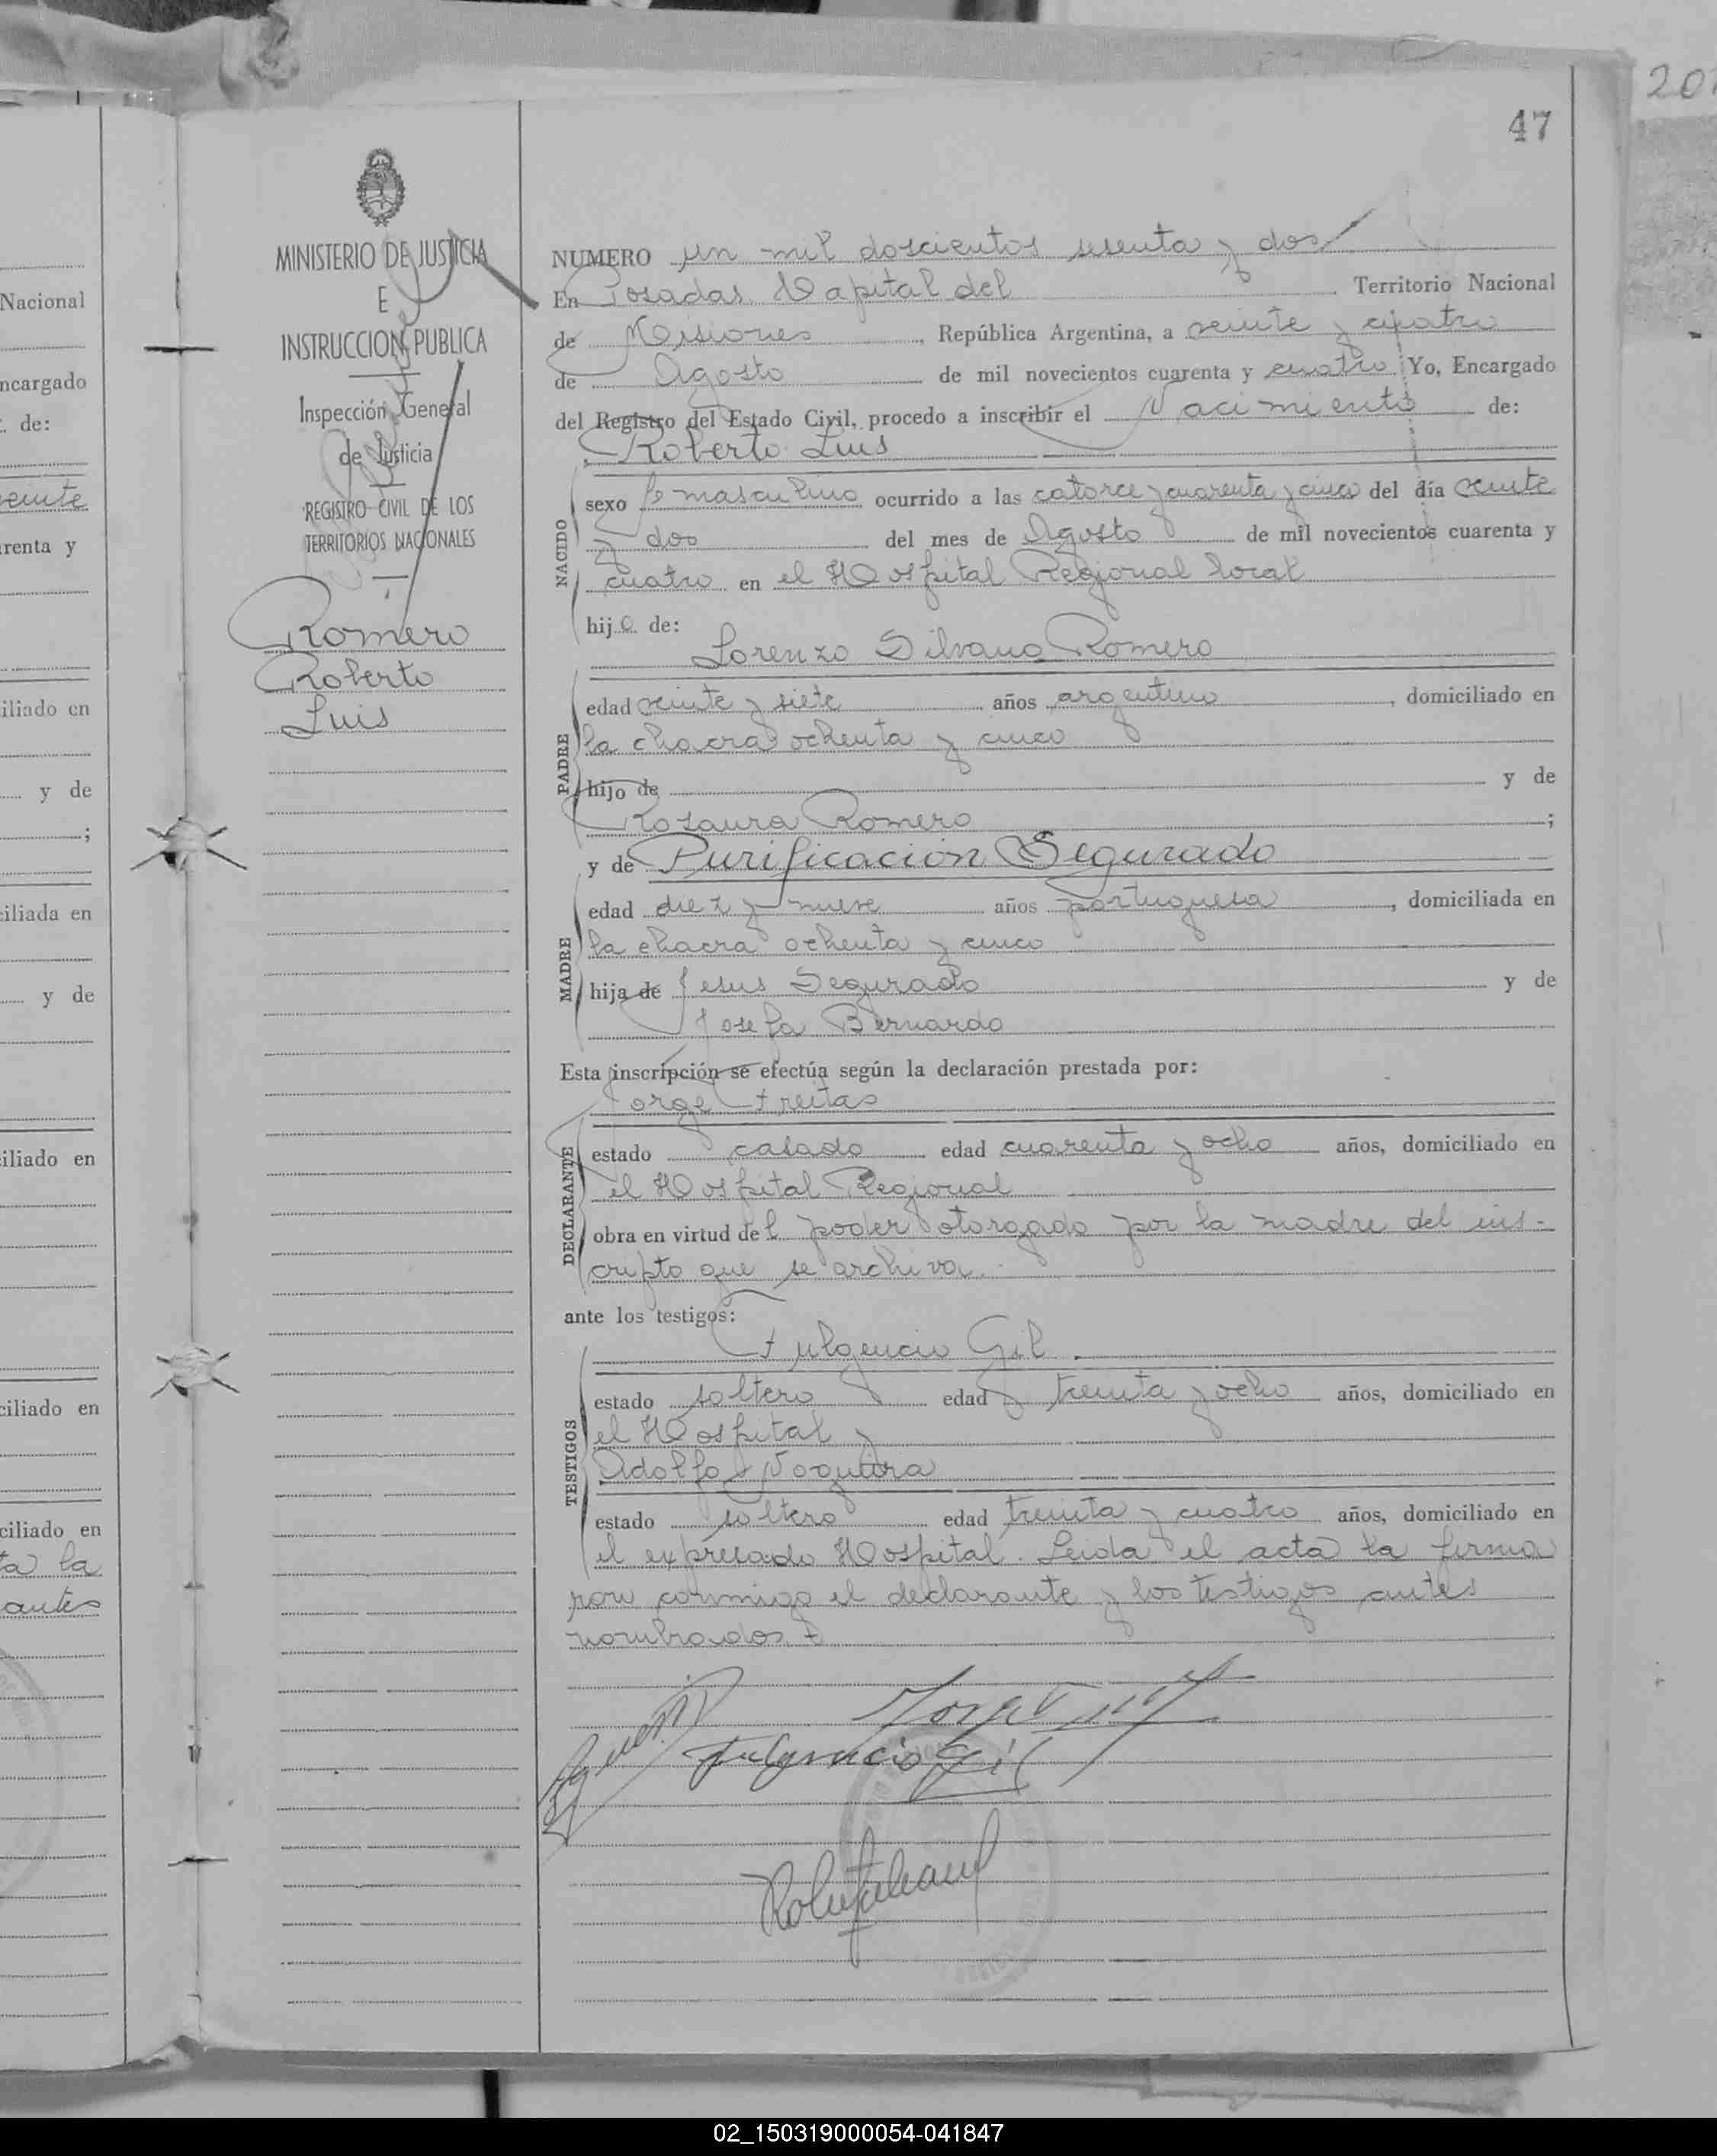 201
47
MINISTERIO DE JUSTICIA
E
INSTRUCCION PUBLICA
Inspección General
de Justicia
REGISTRO CIVIL DE LOS
TERRITORIOS NACIONALES
Romero
Roberto
Luis
NUMERO un mil doscientos sesenta y dos
En Posadas Capital del Territorio Nacional
de Misiones, República Argentina, a veinte y cuatro
de Agosto de mil novecientos cuarenta y cuatro Yo, Encargado
del Registro del Estado Civil, procedo a inscribir el Nacimiento de:
Roberto Luis
NACIDO
sexo masculino ocurrido a las catorce y cuarenta y cinco del día veinte
y dos del mes de Agosto de mil novecientos cuarenta y
cuatro en el Hospital Regional local
hijo de:
Lorenzo Silvano Romero
PADRE
edad veinte y siete años argentino, domiciliado en
la chacra ochenta y cinco
hijo de y de
Rosaura Romero;
y de Purificación Segurado
MADRE
edad diez y nueve años portuguesa, domiciliada en
la chacra ochenta y cinco
hija de Jesus Segurado y de
Josefa Bernardo
Esta inscripción se efectúa según la declaración prestada por:
Jorge Freitas
DECLARANTE
estado casado edad cuarenta y ocho años, domiciliado en
el Hospital Regional
obra en virtud del poder otorgado por la madre del ins-
cripto que se archiva.
ante los testigos:
Fulgencio Gil
TESTIGOS
estado soltero edad treinta y ocho años, domiciliado en
el Hospital y
Adolfo Noguera
estado soltero edad treinta y cuatro años, domiciliado en
el expresado Hospital. Leida el acta la firma
ron conmigo el declarante y los testigos antes
nombrados.
Fulgencio Gil
Nacional
ncargado
de:
veinte
renta y
iliado en
y de
;
iliada en
y de
iliado en
ciliado en
ciliado en
ta la
antes
02_150319000054-041847